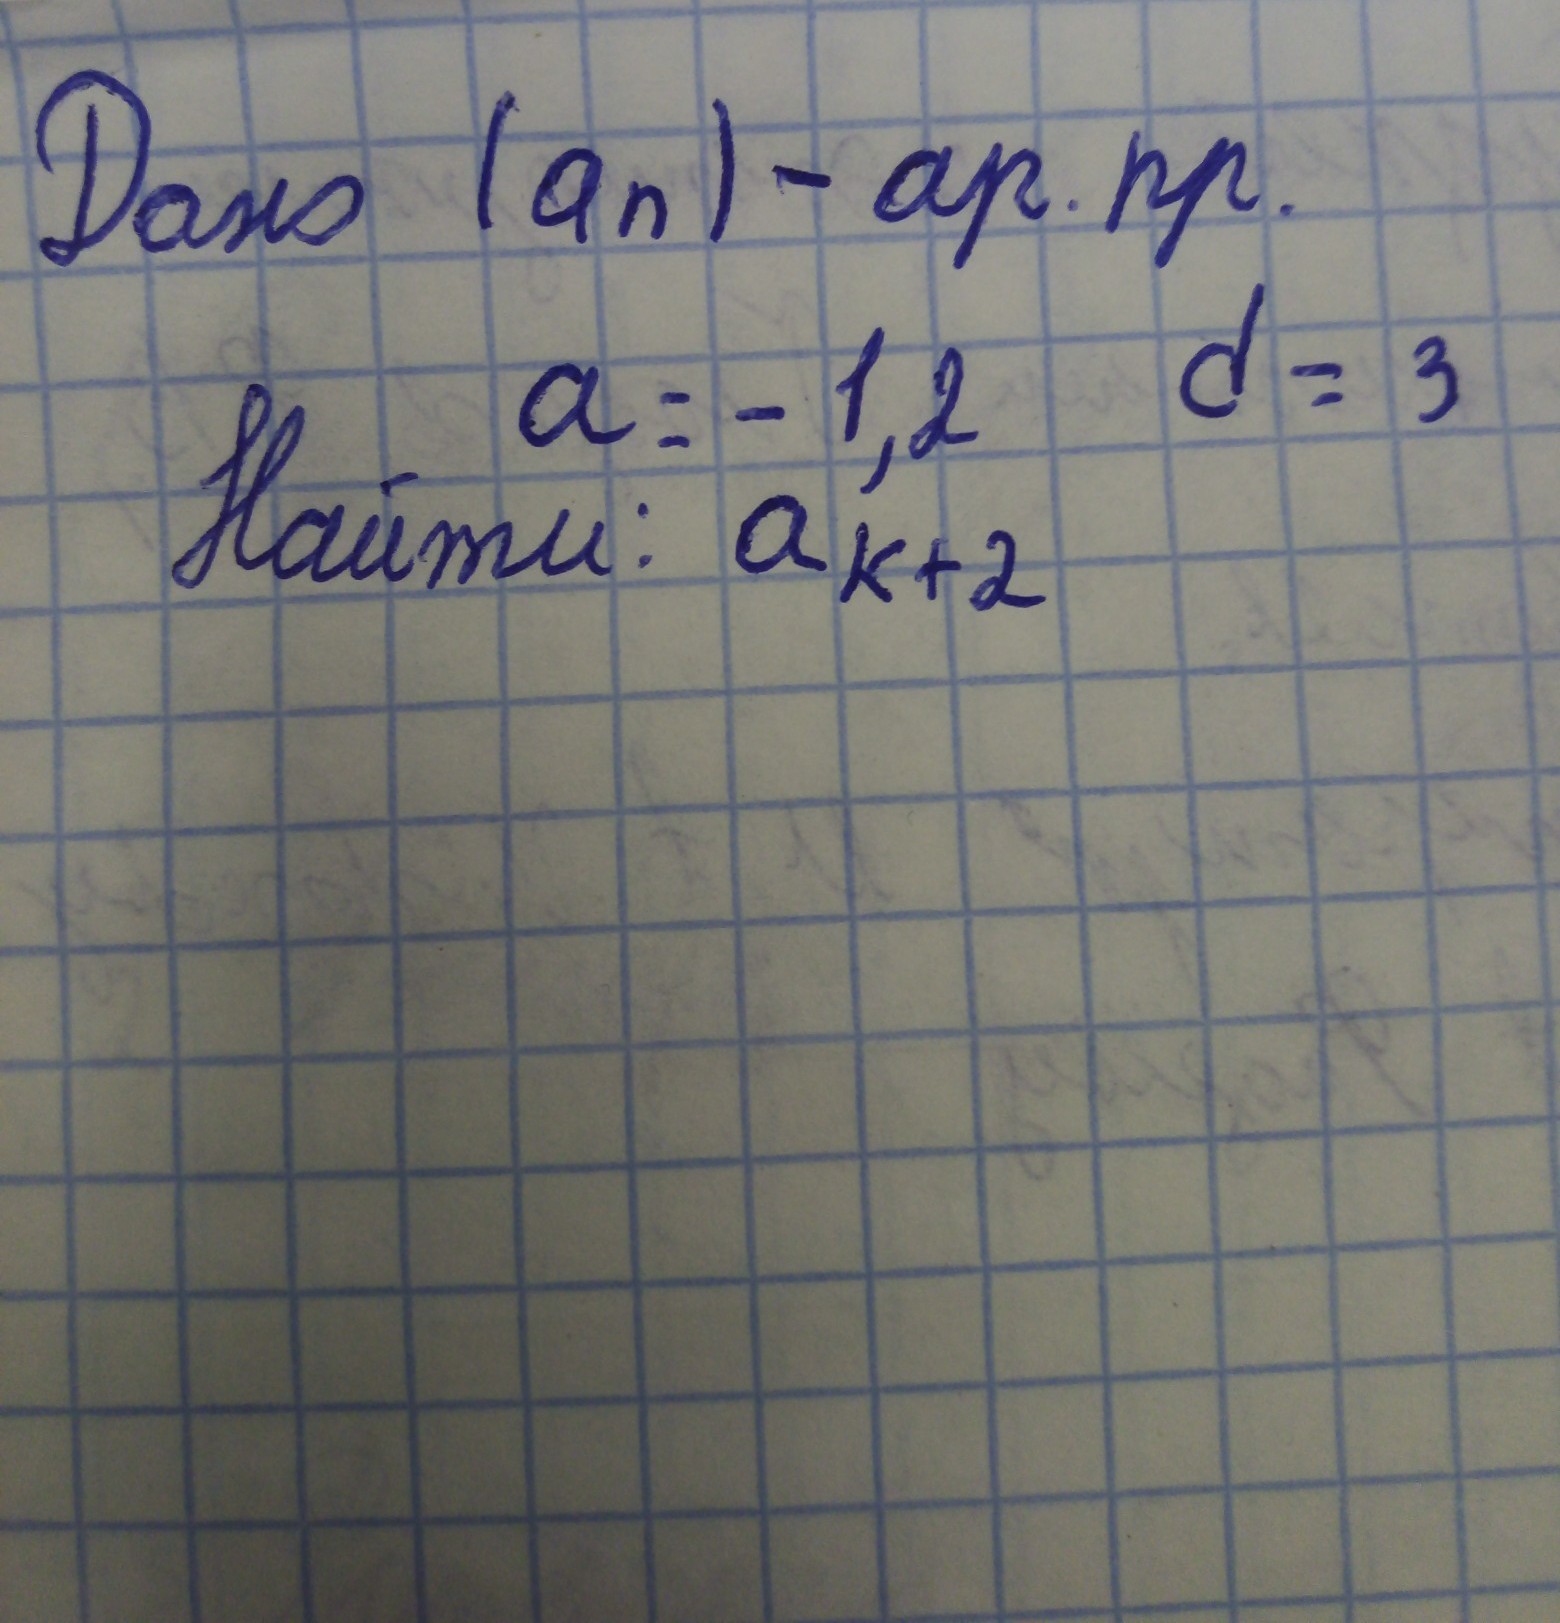 Дано (an) - ар. пр.
a = - 1,2 d = 3
Найти: a k+2